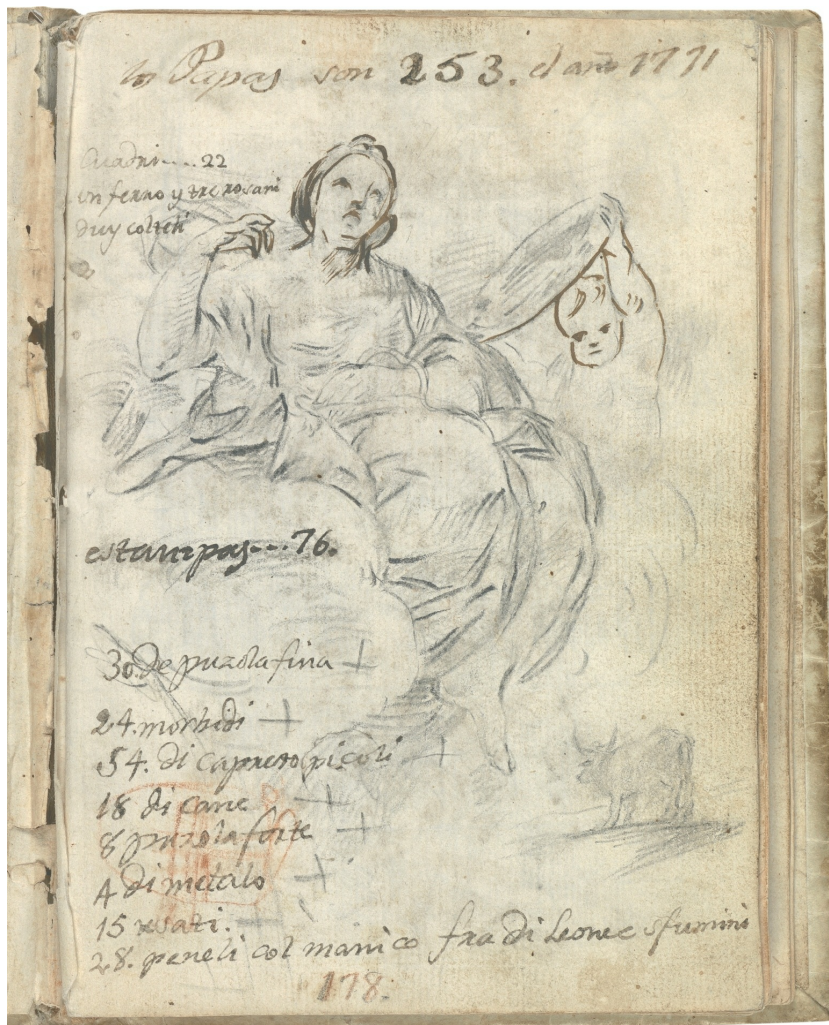 los Papas son 253. el año 1771
Cuadri....22
un ferno y tre rosari
duy colteli
estampas...76.
30. de puzola fina +
24. morbidi +
54. di capreto picoli +
18 di cane +
8 puzola forte +
4 di metalo +
15 usati. +
28. peneli col manico fra di Leone e sfumini
178.